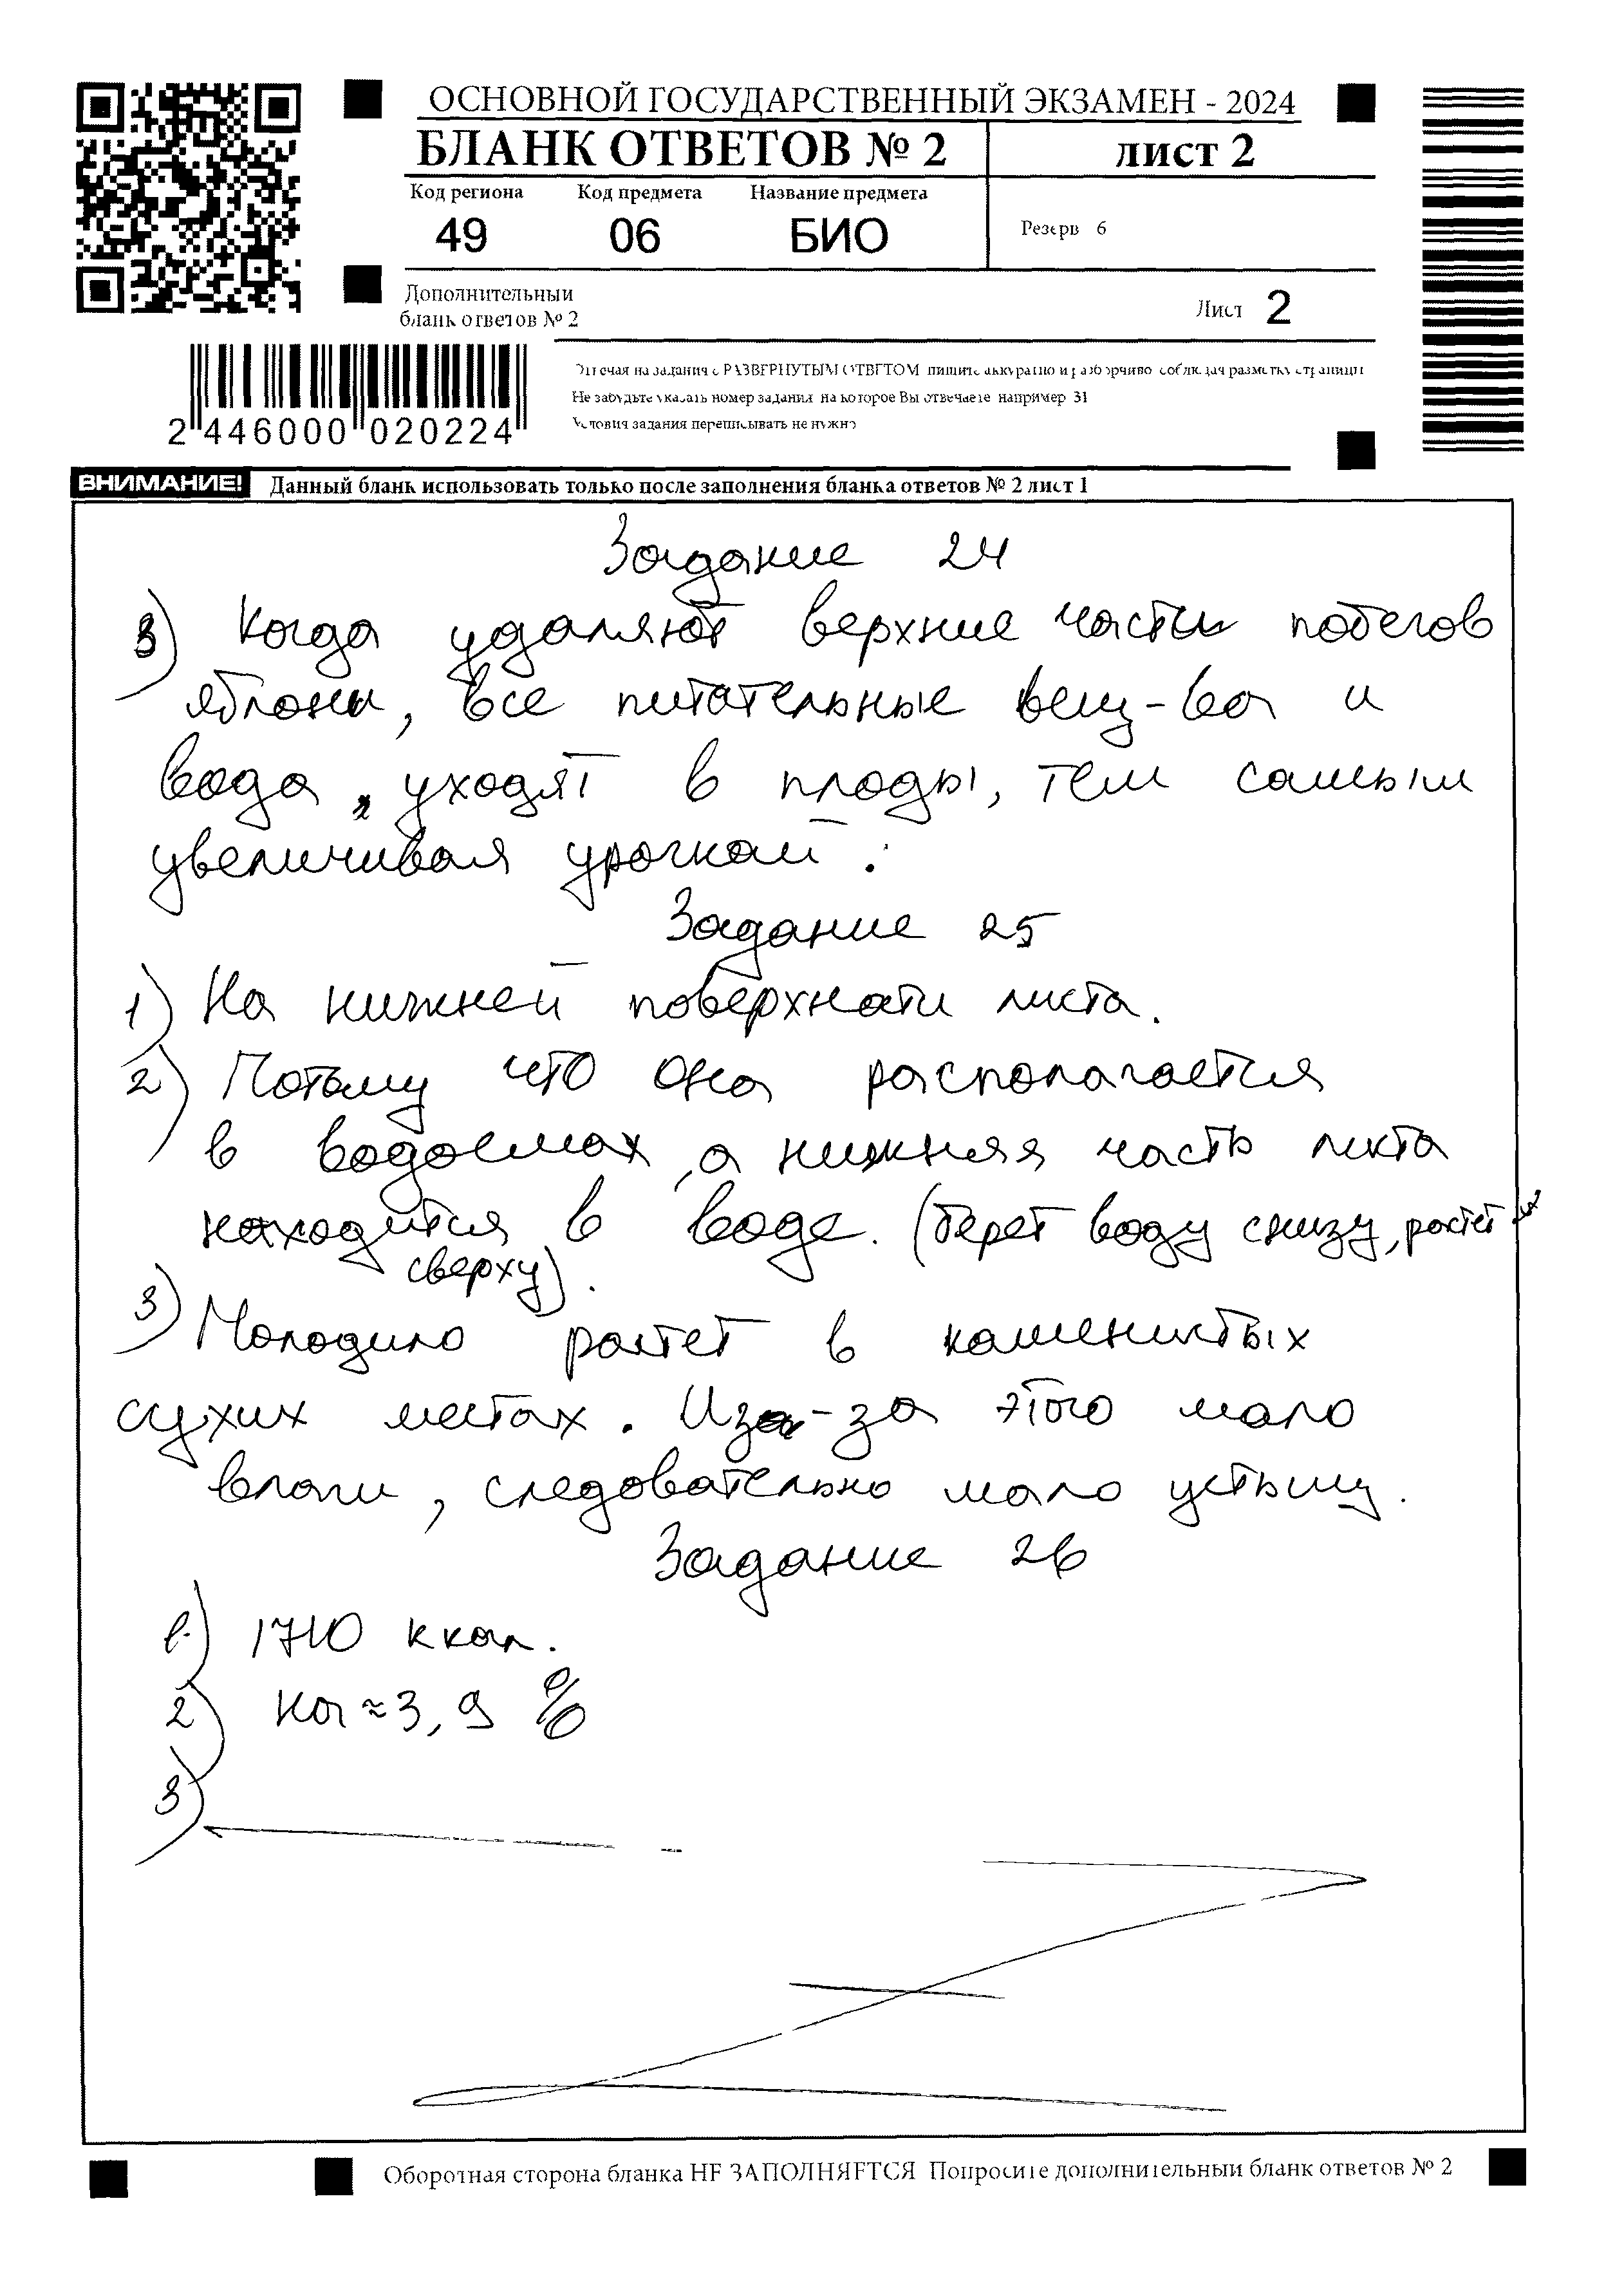 ОСНОВНОЙ ГОСУДАРСТВЕННЫЙ ЭКЗАМЕН - 2024
БЛАНК ОТВЕТОВ № 2 лист 2
Код региона Код предмета Название предмета
49 06 БИО
Резерв 6
Дополнительный
бланк ответов № 2
Лист 2
2 446000 020224
Отвечая на задания с РАЗВЕРНУТЫМ ОТВЕТОМ пишите аккуратно и разборчиво соблюдая разметку страницы
Не забудьте указать номер задания на которое Вы отвечаете например 31
Условия задания переписывать не нужно
ВНИМАНИЕ! Данный бланк использовать только после заполнения бланка ответов № 2 лист 1
Задание 24
3) Когда удаляют верхние части побегов
яблони, все питательные вещ-ва и
вода уходят в плоды, тем самым
увеличивая урожай.
Задание 25
1) На нижней поверхности листа.
2) Потому что она располагается
в водоемах, а нижняя часть листа
находится в воде. (берет воду снизу, растет
сверху).
3) Молодило растет в каменистых
сухих местах. Из-за этого мало
влаги, следовательно мало устьиц.
Задание 26
1) 1710 ккал.
2) на ≈ 3,9 %
3)
Оборотная сторона бланка НЕ ЗАПОЛНЯЕТСЯ Попросите дополнительный бланк ответов № 2